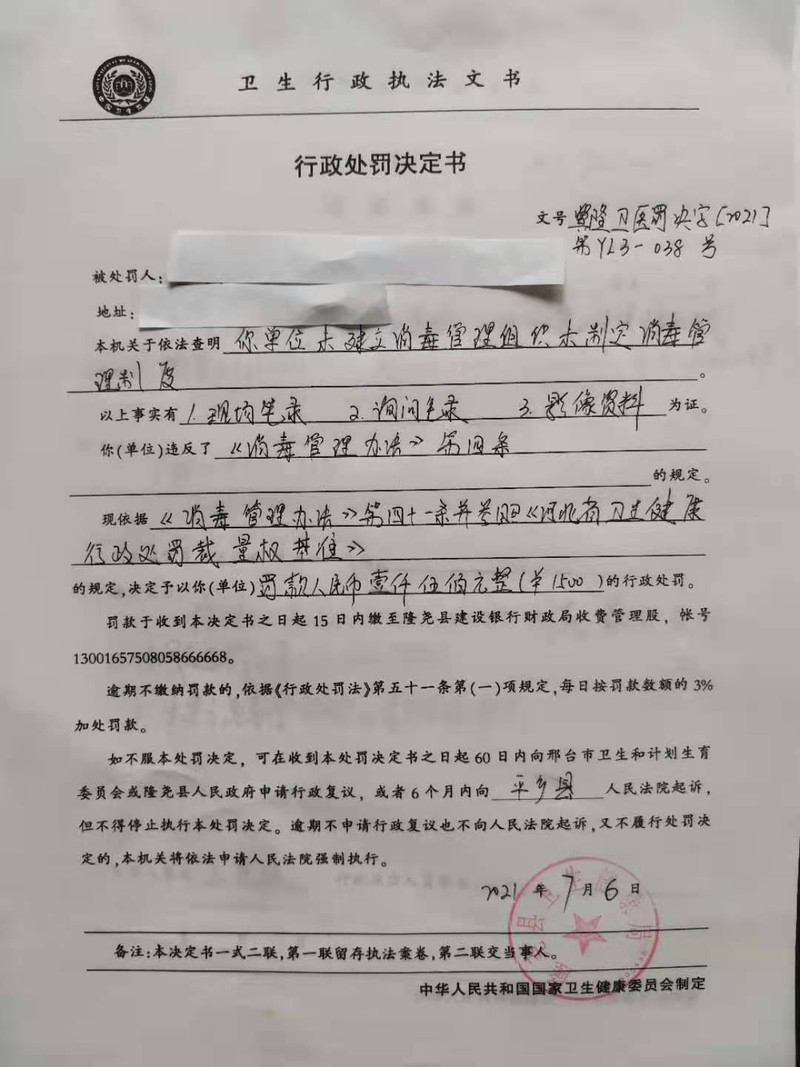 卫生行政执法文书
行政处罚决定书
文号 冀隆卫医罚决字[2021]
第YL3-038号
被处罚人:
地址:
本机关于依法查明 你单位未建立消毒管理组织未制定消毒管
理制度。
以上事实有 1.现场笔录 2.询问笔录 3.影像资料 为证。
你(单位)违反了《消毒管理办法》第四条
的规定。
现依据《消毒管理办法》第四十一条并参照《河北省卫生健康
行政处罚裁量权基准》
的规定,决定予以你(单位)罚款人民币壹仟伍佰元整(¥1500)的行政处罚。
罚款于收到本决定书之日起15日内缴至隆尧县建设银行财政局收费管理股,帐号
13001657508058666668。
逾期不缴纳罚款的,依据《行政处罚法》第五十一条第(一)项规定,每日按罚款数额的3%
加处罚款。
如不服本处罚决定,可在收到本处罚决定书之日起60日内向邢台市卫生和计划生育
委员会或隆尧县人民政府申请行政复议,或者6个月内向 平乡县 人民法院起诉,
但不得停止执行本处罚决定。逾期不申请行政复议也不向人民法院起诉,又不履行处罚决
定的,本机关将依法申请人民法院强制执行。
2021年7月6日
备注:本决定书一式二联,第一联留存执法案卷,第二联交当事人。
中华人民共和国国家卫生健康委员会制定